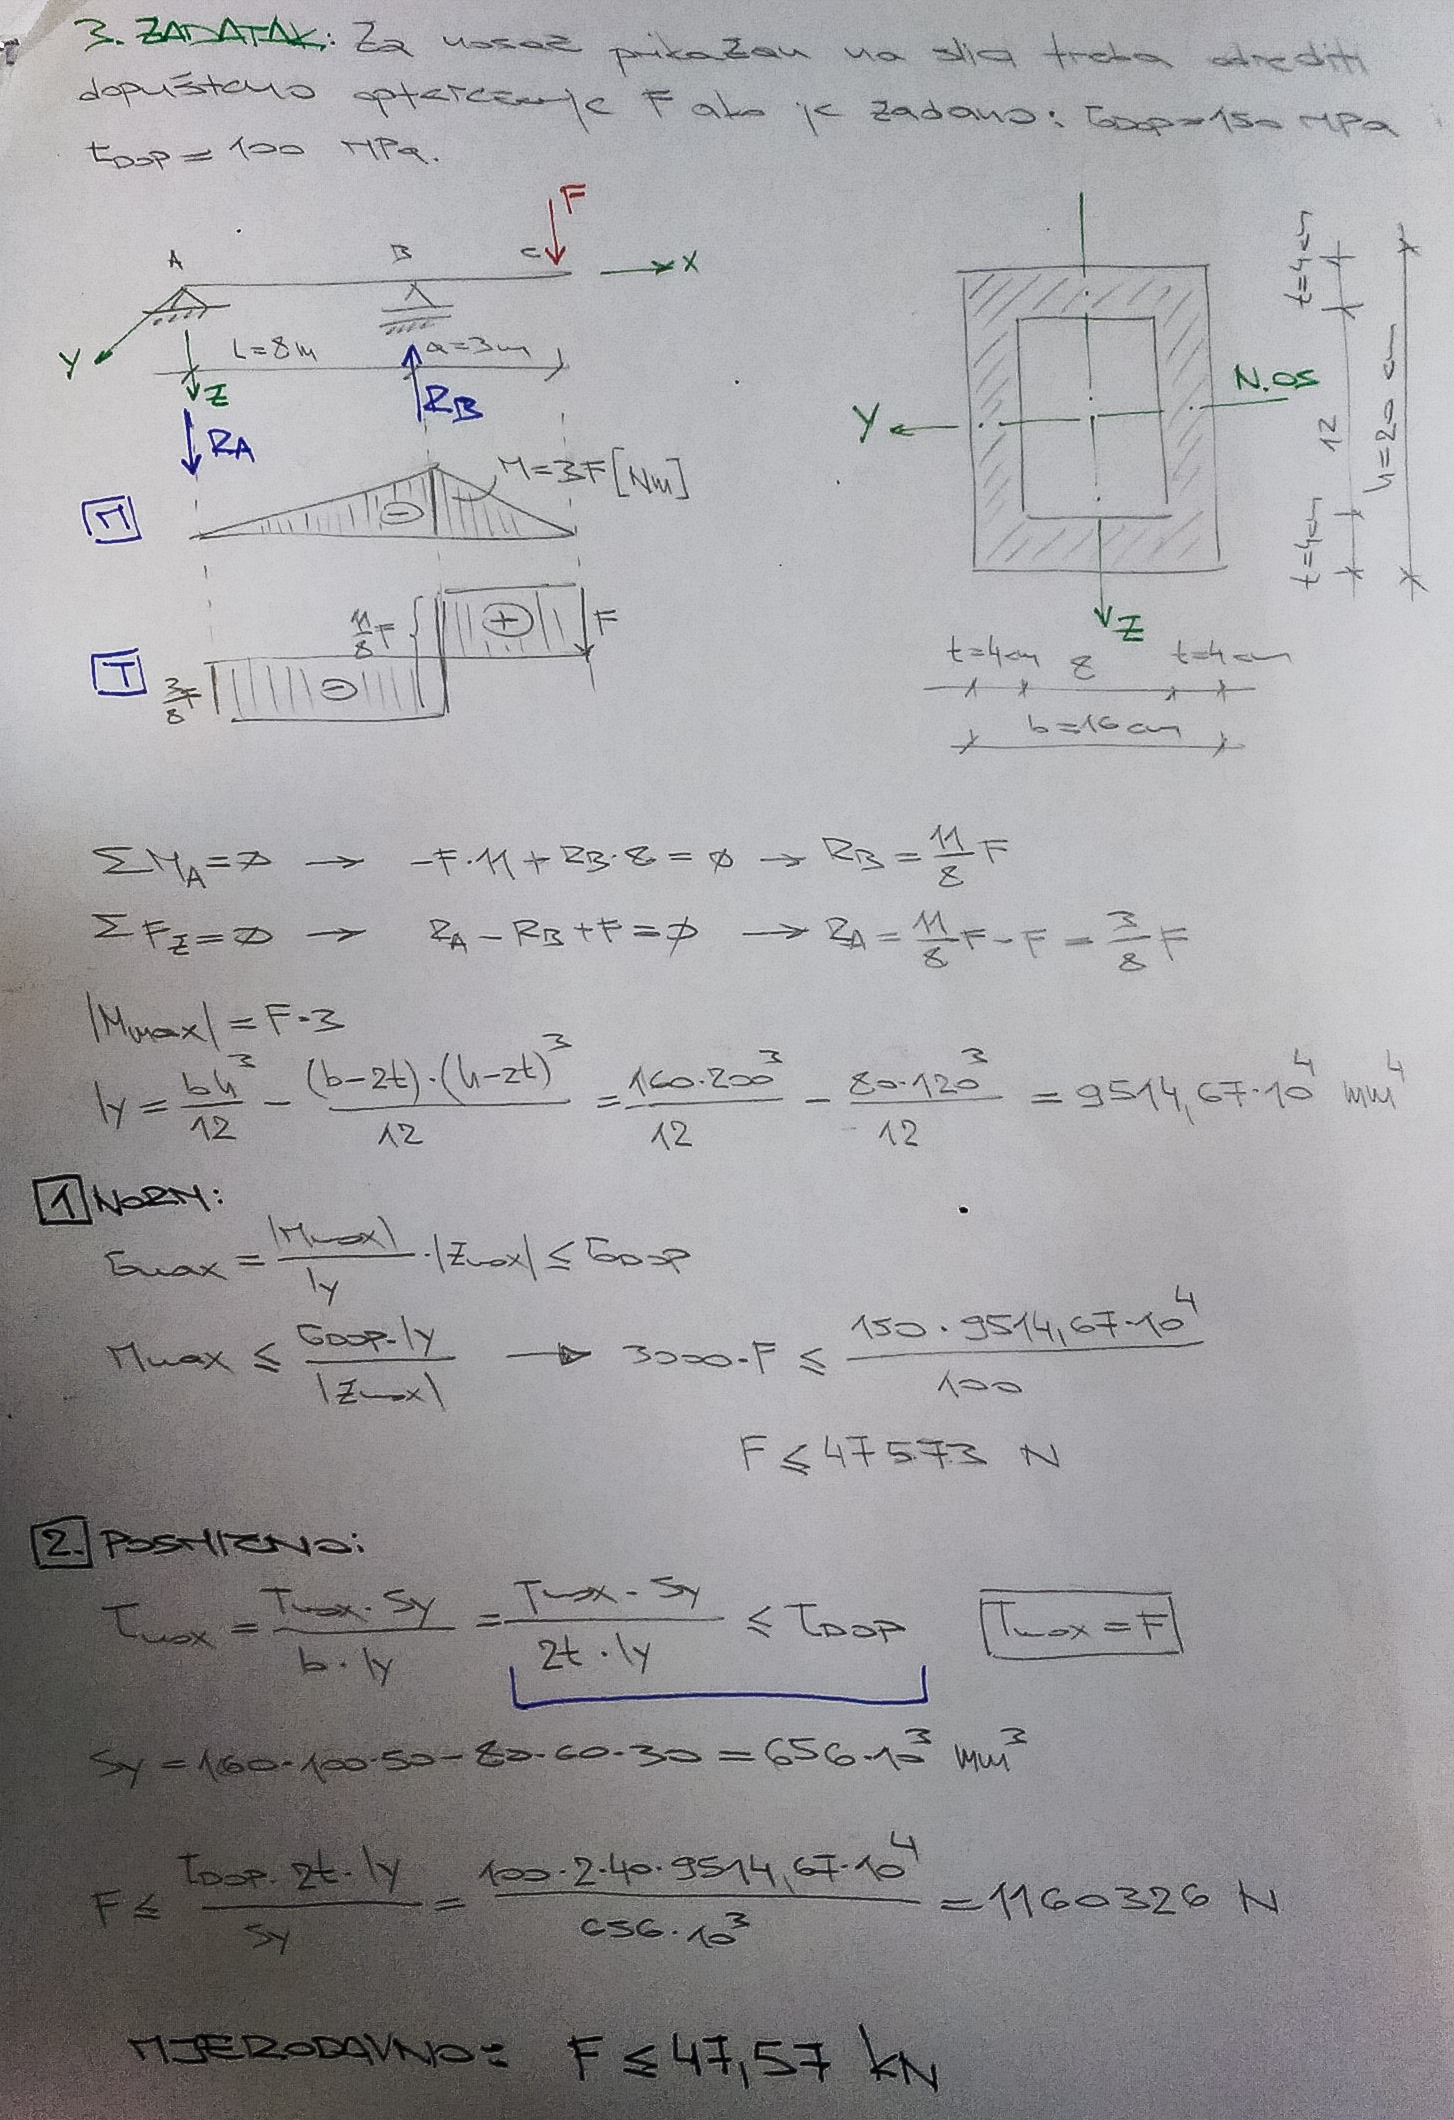 3. ZADATAK: Za nosač prikazan na slici treba odrediti
dopušteno opterećenje F ako je zadano: σDOP=150 MPa i
τDOP= 100 MPa.
F
A B C X
Y L=8m a=3m
Z
RA RB
M M=3F[Nm] -
T 11/8 F + F
3/8 F -
t=4cm
Y N.OS 12 h=20 cm
t=4cm
Z
t=4cm 8 t=4cm
b=16cm
ΣMA=0 → -F·11+RB·8=0 → RB=11/8 F
ΣFZ=0 → RA-RB+F=0 → RA=11/8 F-F=3/8 F
|Mmax|=F·3
Iy=bh³/12 - (b-2t)·(h-2t)³/12 = 160·200³/12 - 80·120³/12 = 9514,67·10⁴ mm⁴
1 NORM:
σmax=|Mmax|/Iy·|Zmax|≤σDOP
Mmax≤σDOP·Iy/|Zmax| → 3000·F≤150·9514,67·10⁴/100
F≤47573 N
2. POSMIČNO:
τmax=Tmax·Sy/b·Iy=Tmax·Sy/2t·Iy≤τDOP Tmax=F
Sy=160·100·50-80·60·30=656·10³ mm³
F≤τDOP·2t·Iy/Sy=100·2·40·9514,67·10⁴/656·10³=1160326 N
MJERODAVNO: F≤47,57 kN